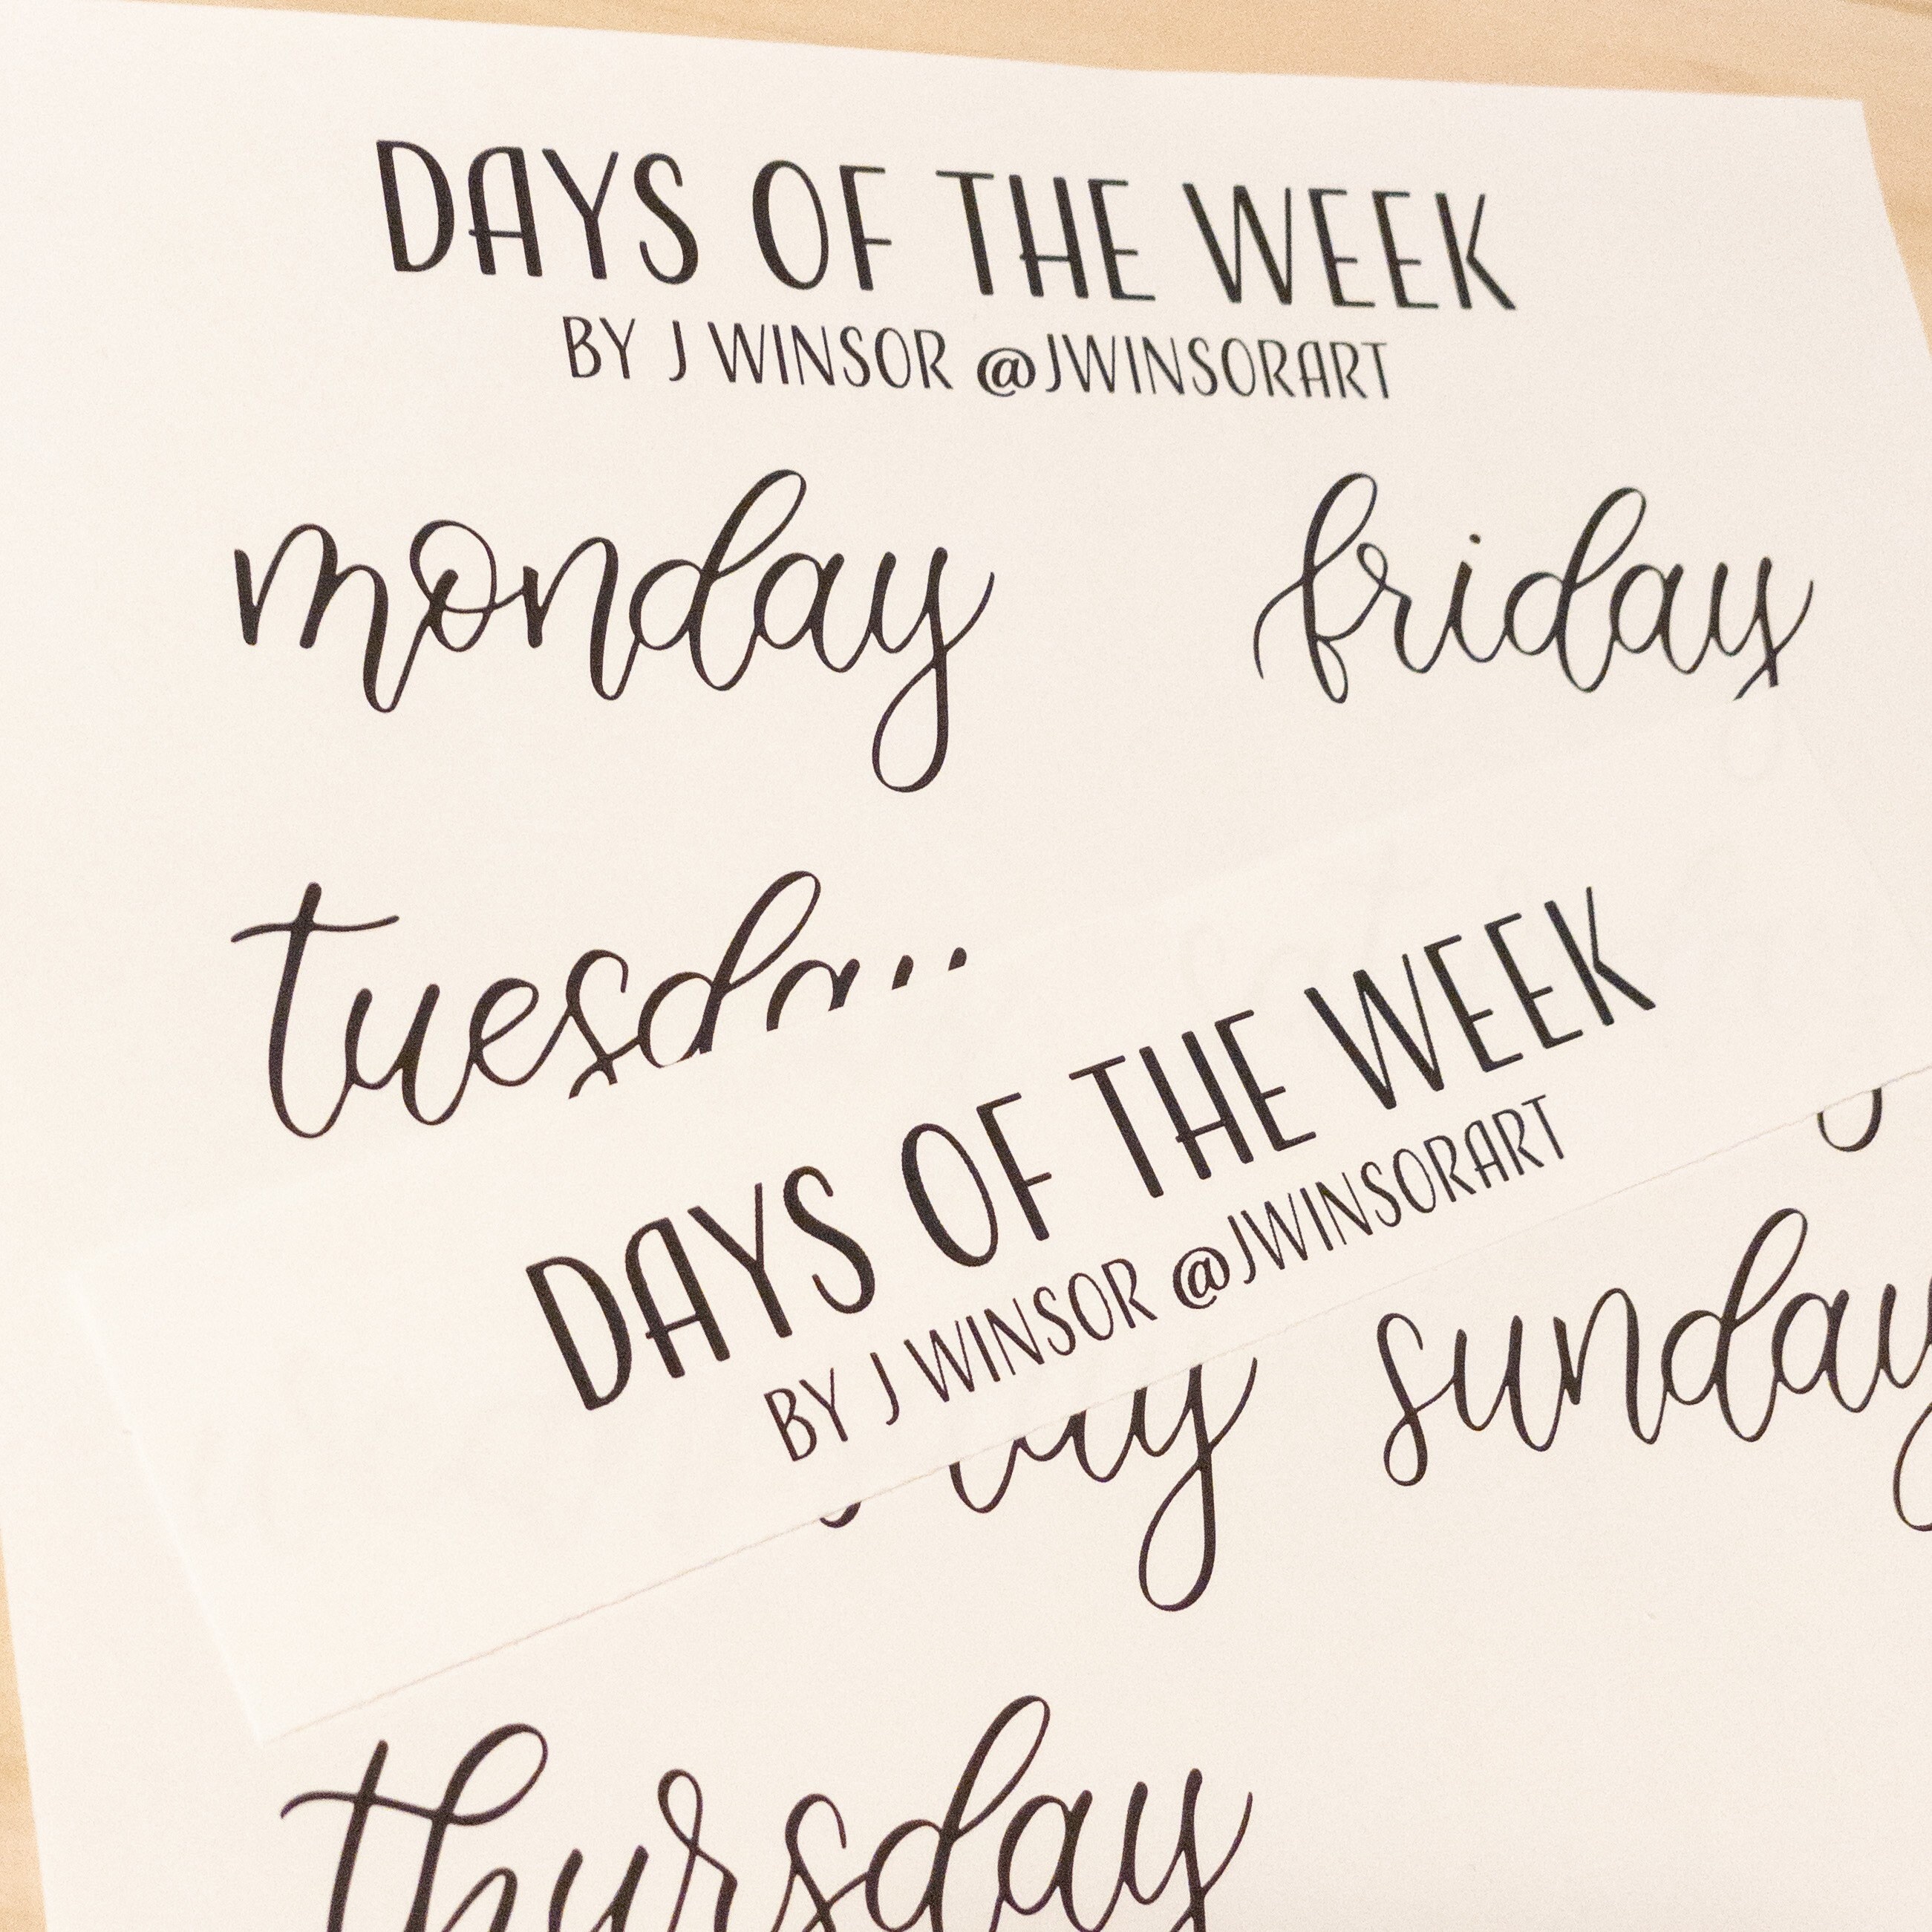 DAYS OF THE WEEK
BY J WINSOR @JWINSORART
monday
friday
DAYS OF THE WEEK
BY J WINSOR @JWINSORART
sunday
thursday